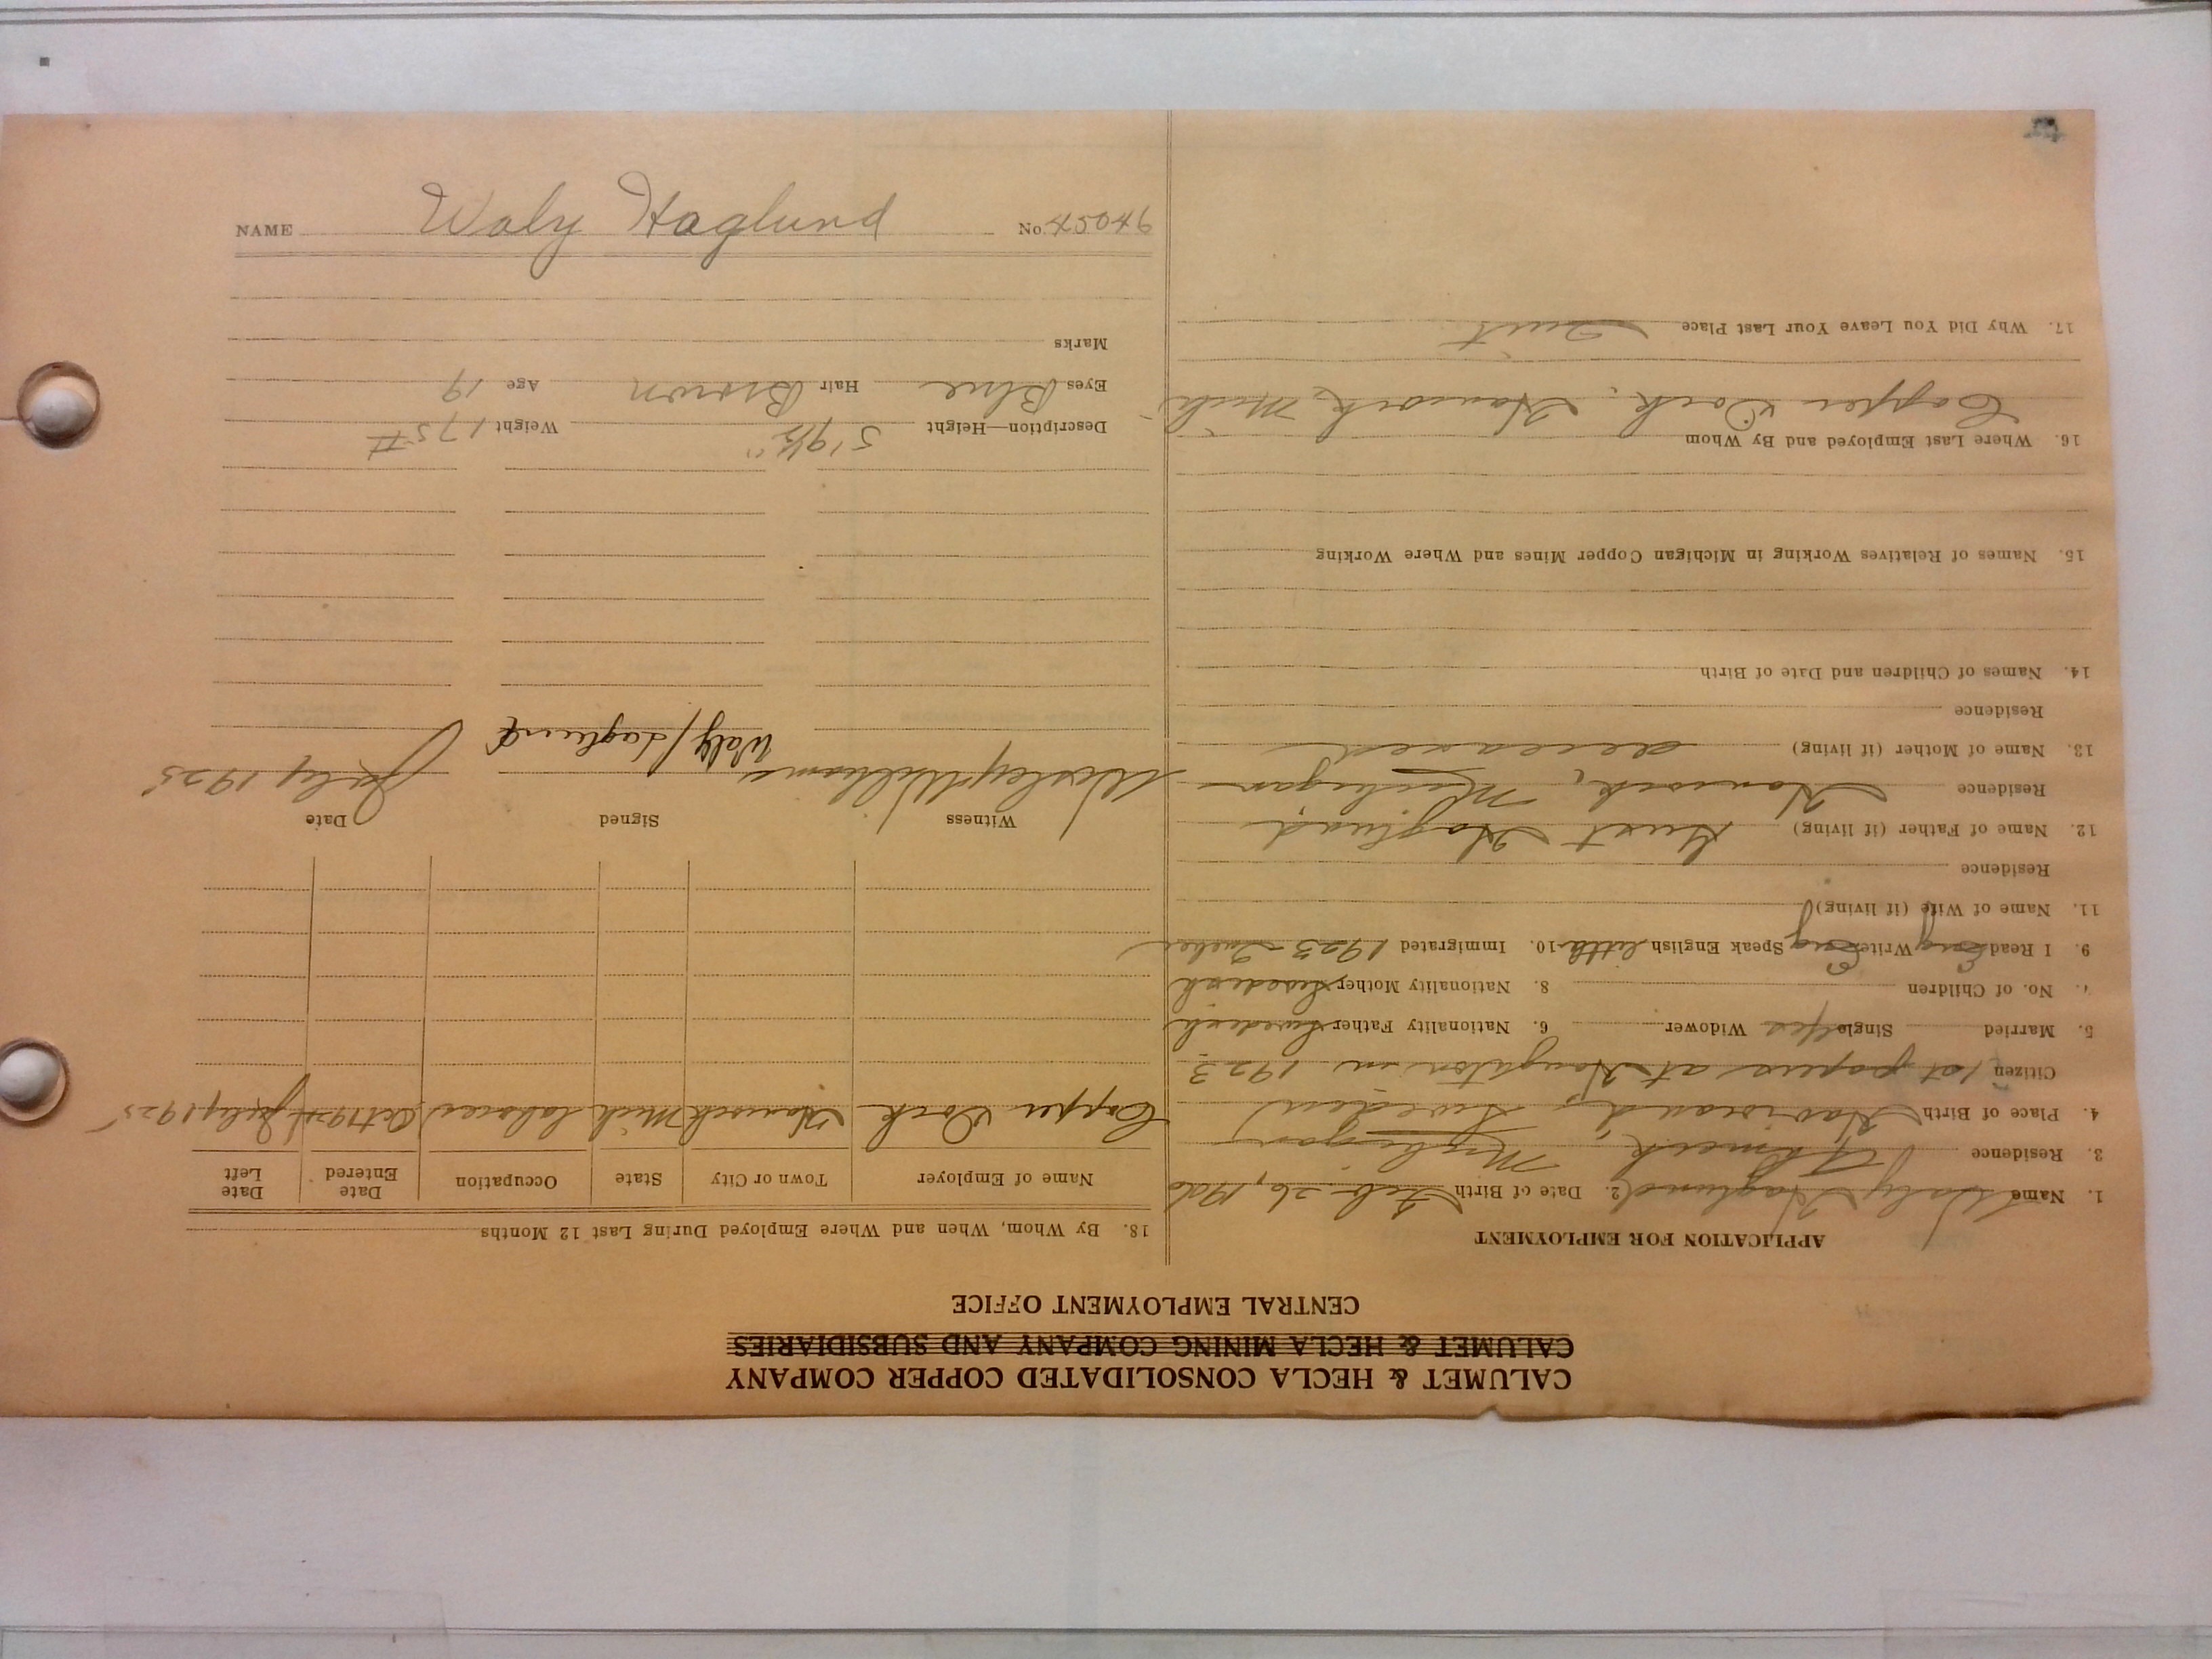 NAME Waly Haglund No. 45046
CALUMET & HECLA CONSOLIDATED COPPER COMPANY
CALUMET & HECLA MINING COMPANY AND SUBSIDIARIES
CENTRAL EMPLOYMENT OFFICE
APPLICATION FOR EMPLOYMENT
1. Name Waly Haglund 2. Date of Birth Feb 26, 1906
3. Residence Ahmeek, Michigan
4. Place of Birth Sweden
Citizen 1st papers at Houghton in 1923
5. Married Single Yes Widower 6. Nationality Father Swedish
7. No. of Children 8. Nationality Mother Swedish
9. I Read Eng Write Eng Speak English little 10. Immigrated 1923
11. Name of Wife (if living)
Residence
12. Name of Father (if living) Gust Haglund
Residence Hancock, Michigan
13. Name of Mother (if living) deceased
Residence
14. Names of Children and Date of Birth
15. Names of Relatives Working in Michigan Copper Mines and Where Working
16. Where Last Employed and By Whom
Copper Dock, Hancock, Mich
17. Why Did You Leave Your Last Place Quit
18. By Whom, When and Where Employed During Last 12 Months
Name of Employer Town or City State Occupation Date Entered Date Left
Copper Dock Hancock Mich laborer Oct 1924 July 1925
Witness Signed Date
Wesley Williams Waly Haglund July 1925
Description—Height 5' 9 1/2" Weight 175 #
Eyes Blue Hair Brown Age 19
Marks